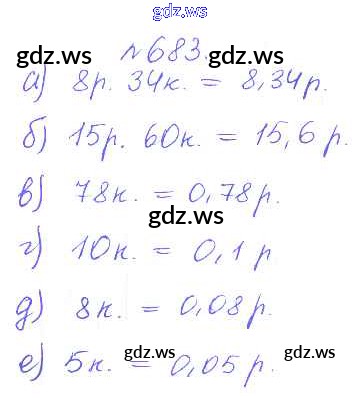 gdz.ws
№683.
gdz.ws gdz.ws
а) 8р. 34к. = 8,34р.
б) 15р. 60к. = 15,6 р.
в) 78к. = 0,78р.
gdz.ws
г) 10к. = 0,1 р
д) 8к. = 0,08р.
е) 5к. = 0,05 р.
gdz.ws gdz.ws